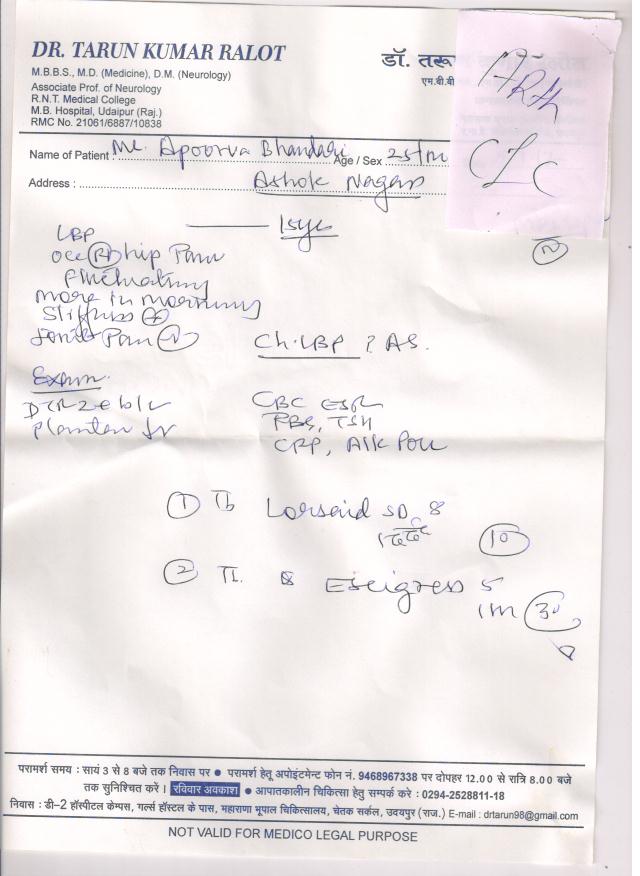 DR. TARUN KUMAR RALOT
M.B.B.S., M.D. (Medicine), D.M. (Neurology)
Associate Prof. of Neurology
R.N.T. Medical College
M.B. Hospital, Udaipur (Raj.)
RMC No. 21061/6887/10838
डॉ. तरू
एम.बी.बी
CLC
Name of Patient Mr. Apoorva Bhandari Age / Sex 25/m
Address : Ashok Nagar
LBP
occ (Rt) hip Pain
fluctuating
more in morning
Stiffness (+)
Joint Pain
Ch. LBP ? AS.
Exam.
Plantar
CBC ESR
TSH
CRP, Alk
① SD 8
10
② 5
1m 30
परामर्श समय : सायं 3 से 8 बजे तक निवास पर ● परामर्श हेतू अपोइंटमेन्ट फोन नं. 9468967338 पर दोपहर 12.00 से रात्रि 8.00 बजे
तक सुनिश्चित करें । रविवार अवकाश ● आपातकालीन चिकित्सा हेतु सम्पर्क करे : 0294-2528811-18
निवास : डी–2 हॉस्पीटल केम्पस, गर्ल्स हॉस्टल के पास, महाराणा भूपाल चिकित्सालय, चेतक सर्कल, उदयपुर (राज.) E-mail : drtarun98@gmail.com
NOT VALID FOR MEDICO LEGAL PURPOSE